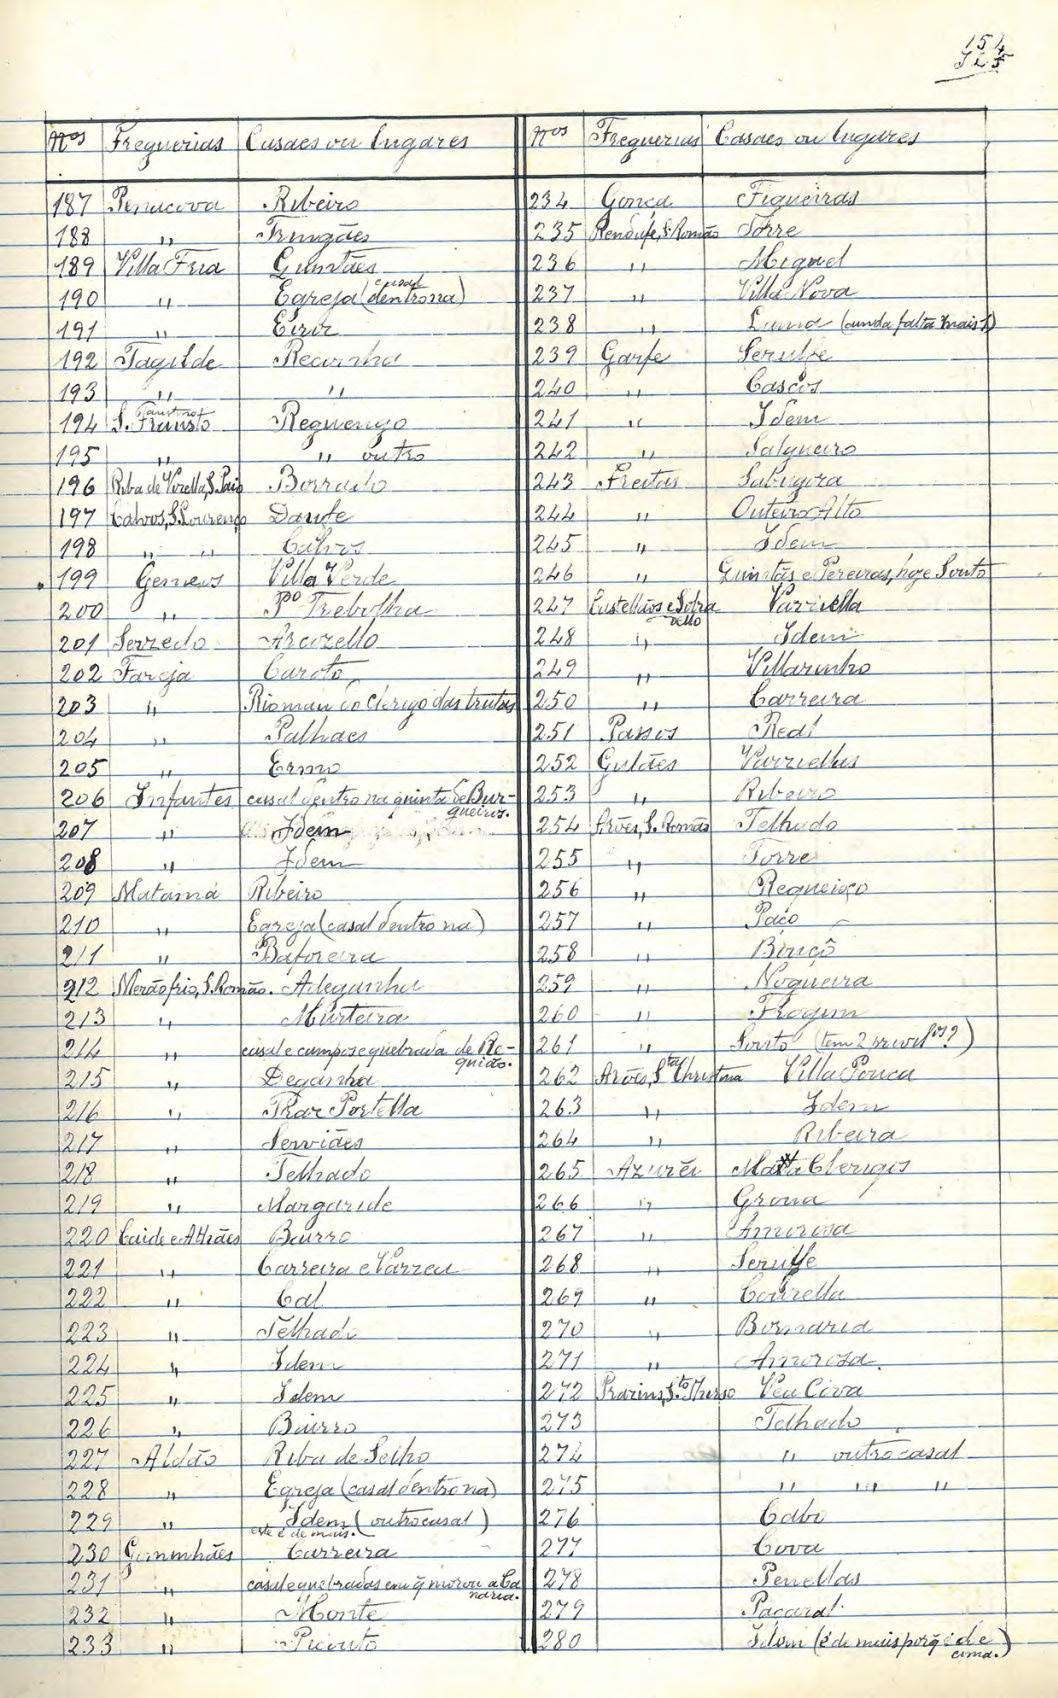 154
Nos Freguerias Casaes ou lugares
187 Penacova Ribeiro
188 " Frungães
189 Villa Fria Guntães
190 " Egreja (casal dentro na)
191 " Eirir
192 Tagilde Recunho
193 " "
194 S. Fausto Faustino Reguengo
195 " " outro
196 Riba de Vizella, S. Paio Borrado
197 Calvos, S. Lourenço Daufe
198 " " Calvos
199 Gemeos Villa Verde
200 " Po Trebolha
201 Serzedo Arcozello
202 Fareja Caroto
203 " Rioman ou Clerigo das trutas
204 " Palhaes
205 " Ermo
206 Infantes casal dentro na quinta de Burgueiros.
207 " Idem
208 " Idem
209 Matamá Ribeiro
210 Egreja (casal dentro na)
211 " Baforeira
212 Mezãofrio, S. Romão. Adeganha
213 " Murteira
214 " casal e campos e quebrada de Requião.
215 " Deganha
216 " Traz Portella
217 " Serviães
218 " Telhado
219 " Margaride
220 Caide e Athães Bairro
221 " Carreira e Varzea
222 " Cal
223 " Telhado
224 " Idem
225 " Idem
226 " Bairro
227 Aldão Riba de Selho
228 " Egreja (casal dentro na)
229 " Idem (outro casal)
este é de mais.
230 Gominhães Carreira
231 " casal e quebradas em q̃ morou a Canaria.
232 " Monte
233 " Picoto
Nos Freguerias Casaes ou lugares
234 Gonça Figueiras
235 Rendufe, S. Romão Torre
236 " Miguel
237 " Villa Nova
238 " Lama (ainda falta mais 1)
239 Garfe Serulfe
240 " Cascos
241 " Idem
242 " Salgueiro
243 Freitas Sabugosa
244 " Outeiro Alto
245 " Idem
246 " Quintãs e Pereiras, hoje Souto
247 Castellãos e Sobradello Varziella
248 " Idem
249 " Villarinho
250 " Carreira
251 Passos Real
252 Gulães Varziellas
253 " Ribeiro
254 Arões, S. Romão Telhado
255 " Torre
256 " Regueixo
257 " Paço
258 " Bouçô
259 " Nogueira
260 " Frogim
261 " Souto (tem 2 )
262 Arões, Sta Christina Villa Pouca
263 " Idem
264 " Ribeira
265 Azurei Mata Clerigos
266 " Groua
267 " Amorosa
268 " Serulfe
269 " Courella
270 " Bomaria
271 " Amorosa.
272 Prazins, Sto Thirso Vea Cova
273 Telhado
274 " outro casal
275 " " "
276 Cabo
277 Cova
278 Penellas
279 Pacaral
280 Idem (é de mais porq̃ é de cima.)